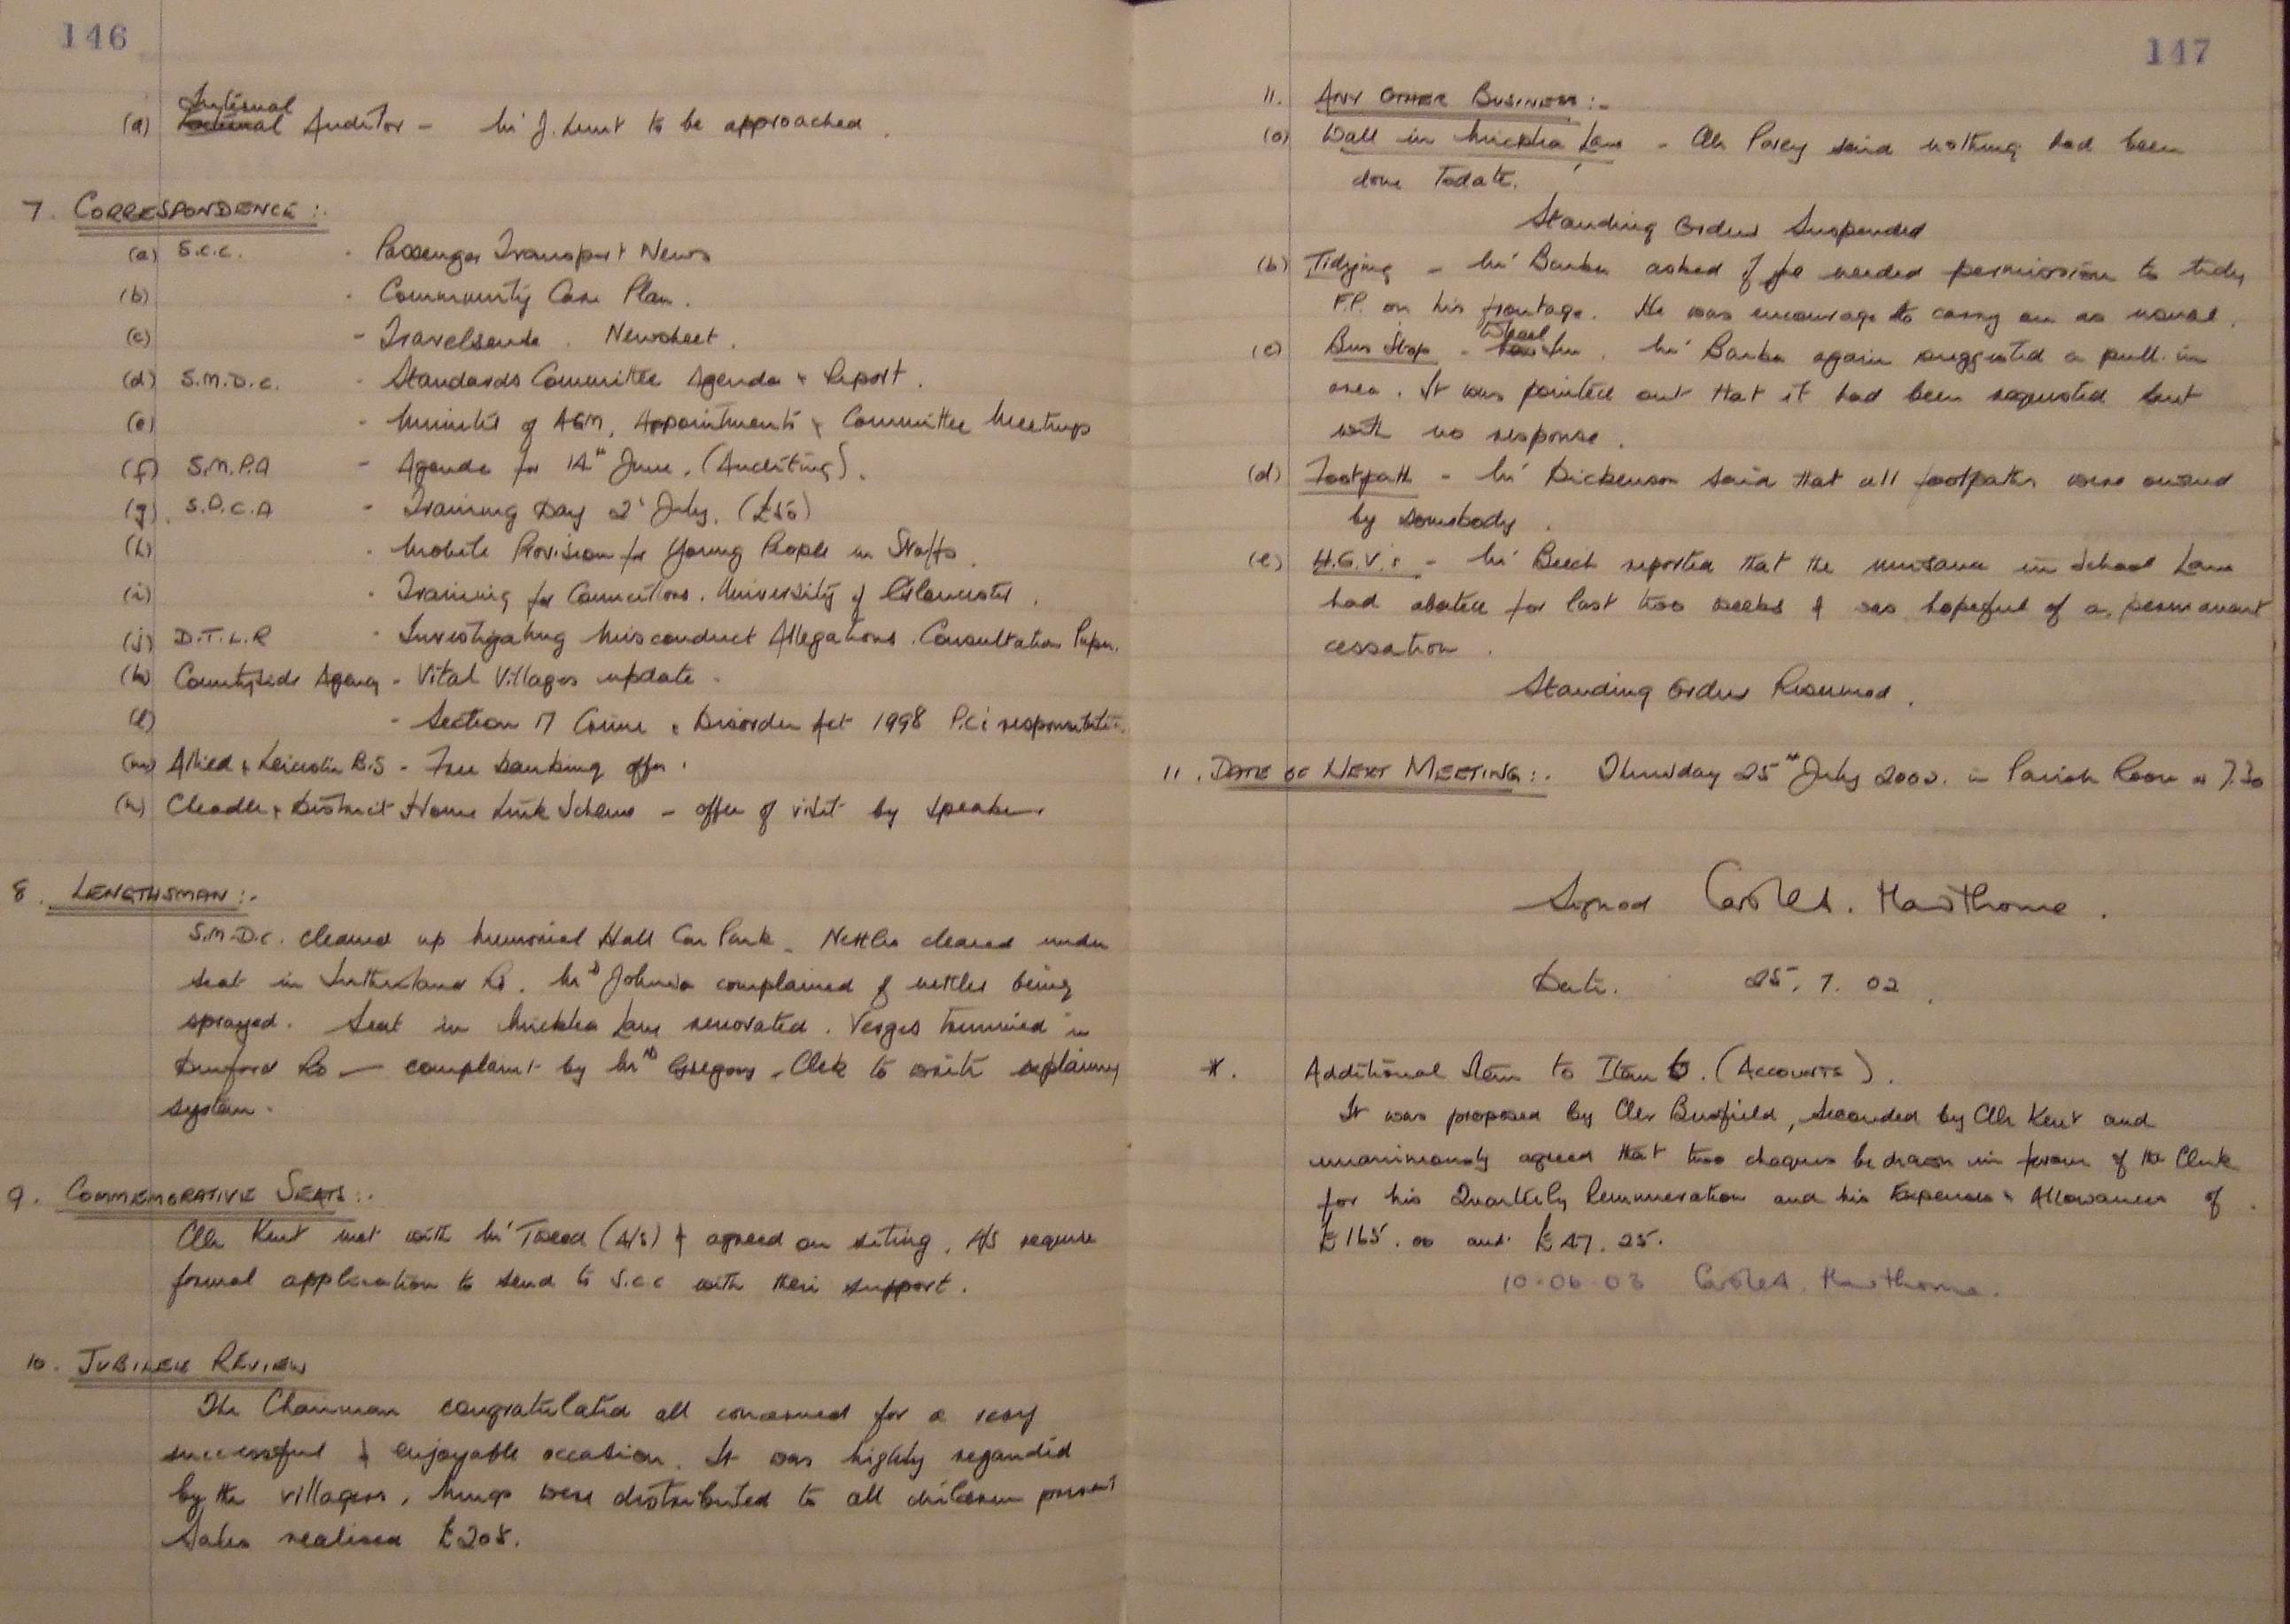 146
Internal
(a) External Auditor - Mr J. Lunt to be approached.
7. CORRESPONDENCE :-
(a) S.C.C. - Passenger Transport News
(b) - Community Care Plan.
(c) - Travelsende. Newsheet.
(d) S.M.D.C. - Standards Committee Agenda & Report.
(e) - Minutes of AGM, Appointments & Committee Meetings
(f) S.M.P.A - Agenda for 14th June. (Auditing).
(g) S.P.C.A - Training Day 2' July. (£50)
(h) - Mobile Provision for Young People in Staffs.
(i) - Training for Councillors. University of Gloucester.
(j) D.T.L.R - Investigating Misconduct Allegations. Consultation Paper.
(k) Countryside Agency - Vital Villages update -
(l) - Section 17 Crime & Disorder Act 1998 P.C's responsibilities.
(m) Allied & Leicester B.S - Free banking offer.
(n) Cheadle & District Home Link Scheme - offer of visit by speaker
8. LENGTHSMAN :-
S.M.D.C. cleaned up Memorial Hall Car Park. Nettles cleared under
seat in Sutherland Rd. Mrs Johnson complained of nettles being
sprayed. Seat in Micklea Lane renovated. Verges trimmed in
Durnford Rd — complaint by Mrs Gregory. Clek to write explaining
system.
9. COMMEMORATIVE SEATS :-
Cllr Kent met with Mr Tweed (A/S) & agreed on siting. A/S require
formal application to send to S.C.C with their support.
10. JUBILEE REVIEW
The Chairman congratulated all concerned for a very
successful & enjoyable occasion. It was highly regarded
by the villagers, Mugs were distributed to all children present
Sales realised £208.
147
11. ANY OTHER BUSINESS :-
(a) Wall in Micklea Lane - Cllr Povey said nothing had been
done Todate.
Standing Orders Suspended
(b) Tidying - Mr Barber asked if he needed permission to tidy
F.P. on his frontage. He was encourage to carry on as usual.
(c) Bus Stop - Wheel. Mr Barber again suggested a pull in
area. It was pointed out that it had been requested but
with no response.
(d) Footpath - Mr Dickenson said that all footpaths were owned
by somebody.
(e) H.G.V.s - Mr Beech reported that the nuisance in School Lane
had abated for last two weeks & was hopeful of a permanant
cessation.
Standing Orders Resumed.
11. DATE OF NEXT MEETING :- Thursday 25th July 2002. in Parish Room at 7.30
Signed Carole A. Hawthorne.
Date. 25. 7. 02.
*. Additional Item to Item 6. (Accounts).
It was proposed by Cllr Busfield, seconded by Cllr Kent and
unanimously agreed that two cheques be drawn in favour of the Clerk
for his Quarterly Remuneration and his Expenses & Allowances of
£165.00 and £47.25.
10.06.03 Carole A. Hawthorne.